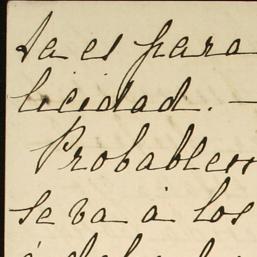 Ia es para
licidad. —
Probablem
se va á los